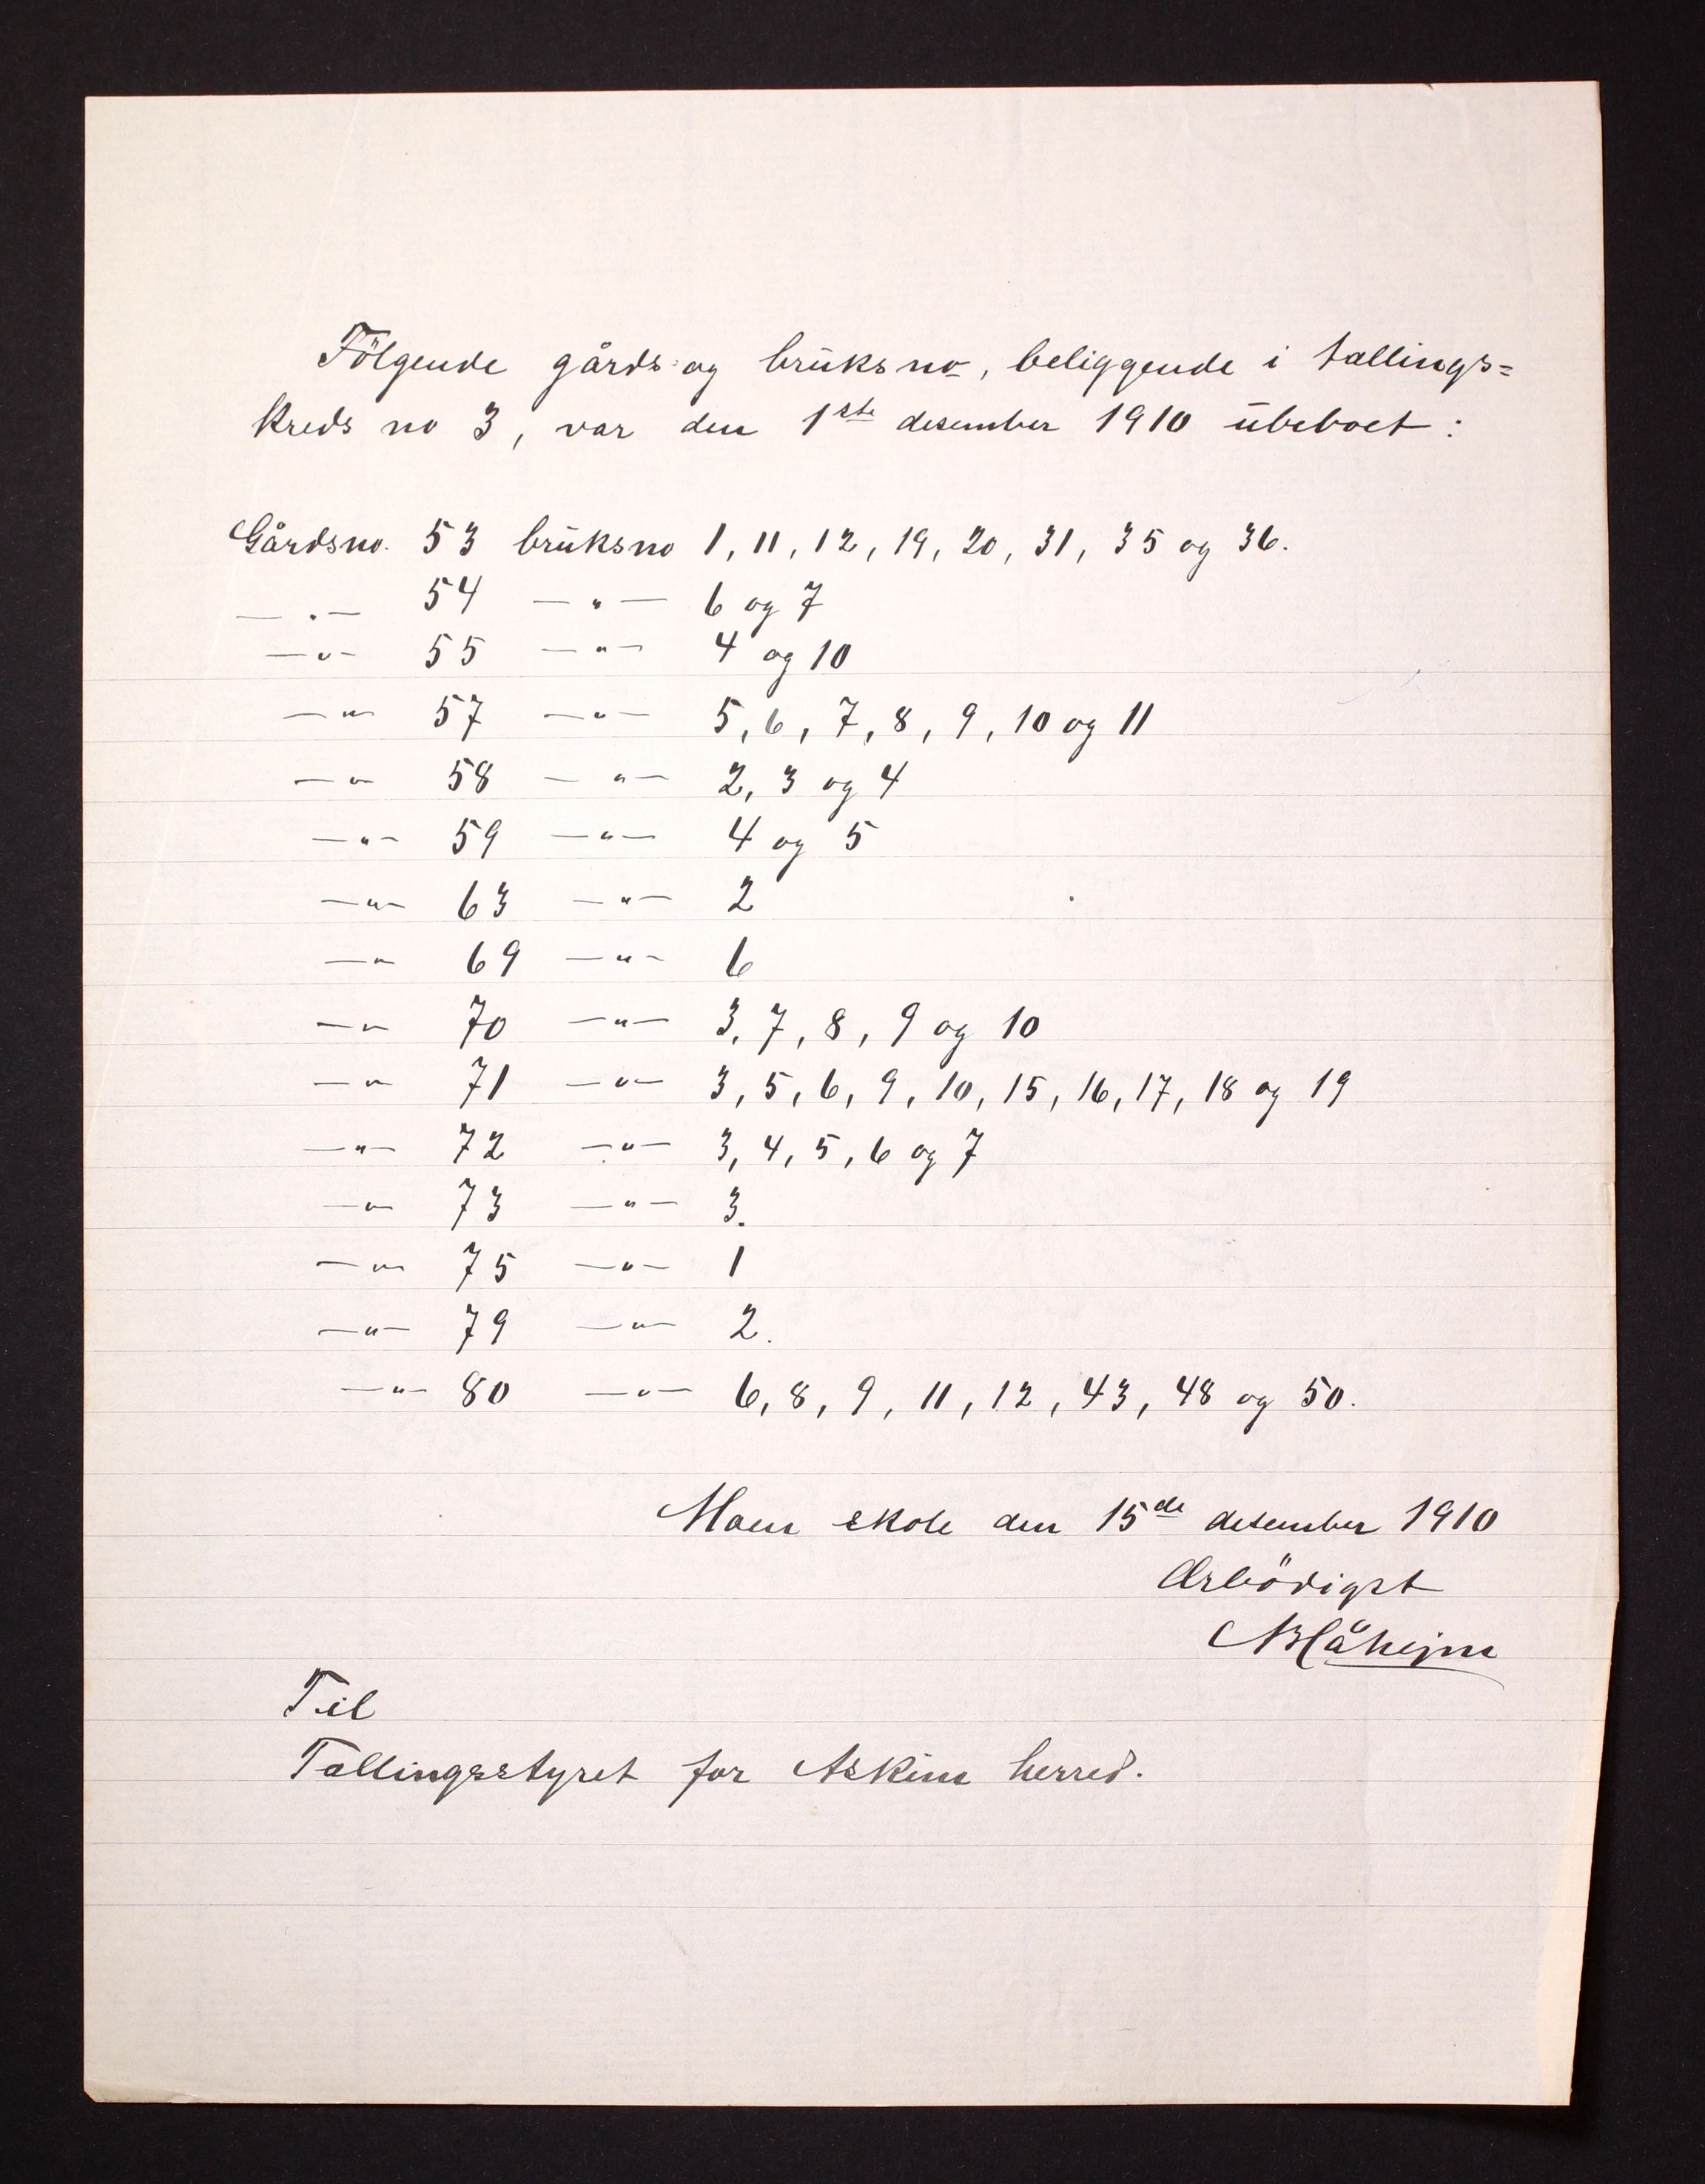 Følgende gårds- og bruksno, beliggende i tællings=
kreds no 3, var den 1ste desember 1910 ubeboet:
Gårdsno. 53 bruksno 1, 11, 12, 19, 20, 31, 35 og 36.
—"— 54 —"— 6 og 7
—"— 55 —"— 4 og 10
—"— 57 —"— 5, 6, 7, 8, 9, 10 og 11
—"— 58 —"— 2, 3 og 4
—"— 59 —"— 4 og 5
—"— 63 —"— 2
—"— 69 —"— 6
—"— 70 —"— 3, 7, 8, 9 og 10
—"— 71 —"— 3, 5, 6, 9, 10, 15, 16, 17, 18 og 19
—"— 72 —"— 3, 4, 5, 6 og 7
—"— 73 —"— 3.
—"— 75 —"— 1
—"— 79 —"— 2.
—"— 80 —"— 6, 8, 9, 11, 12, 43, 48 og 50.
Moen skole den 15de desember 1910
Ærbödigst
Til
Tællingsstyret for Askim herred.